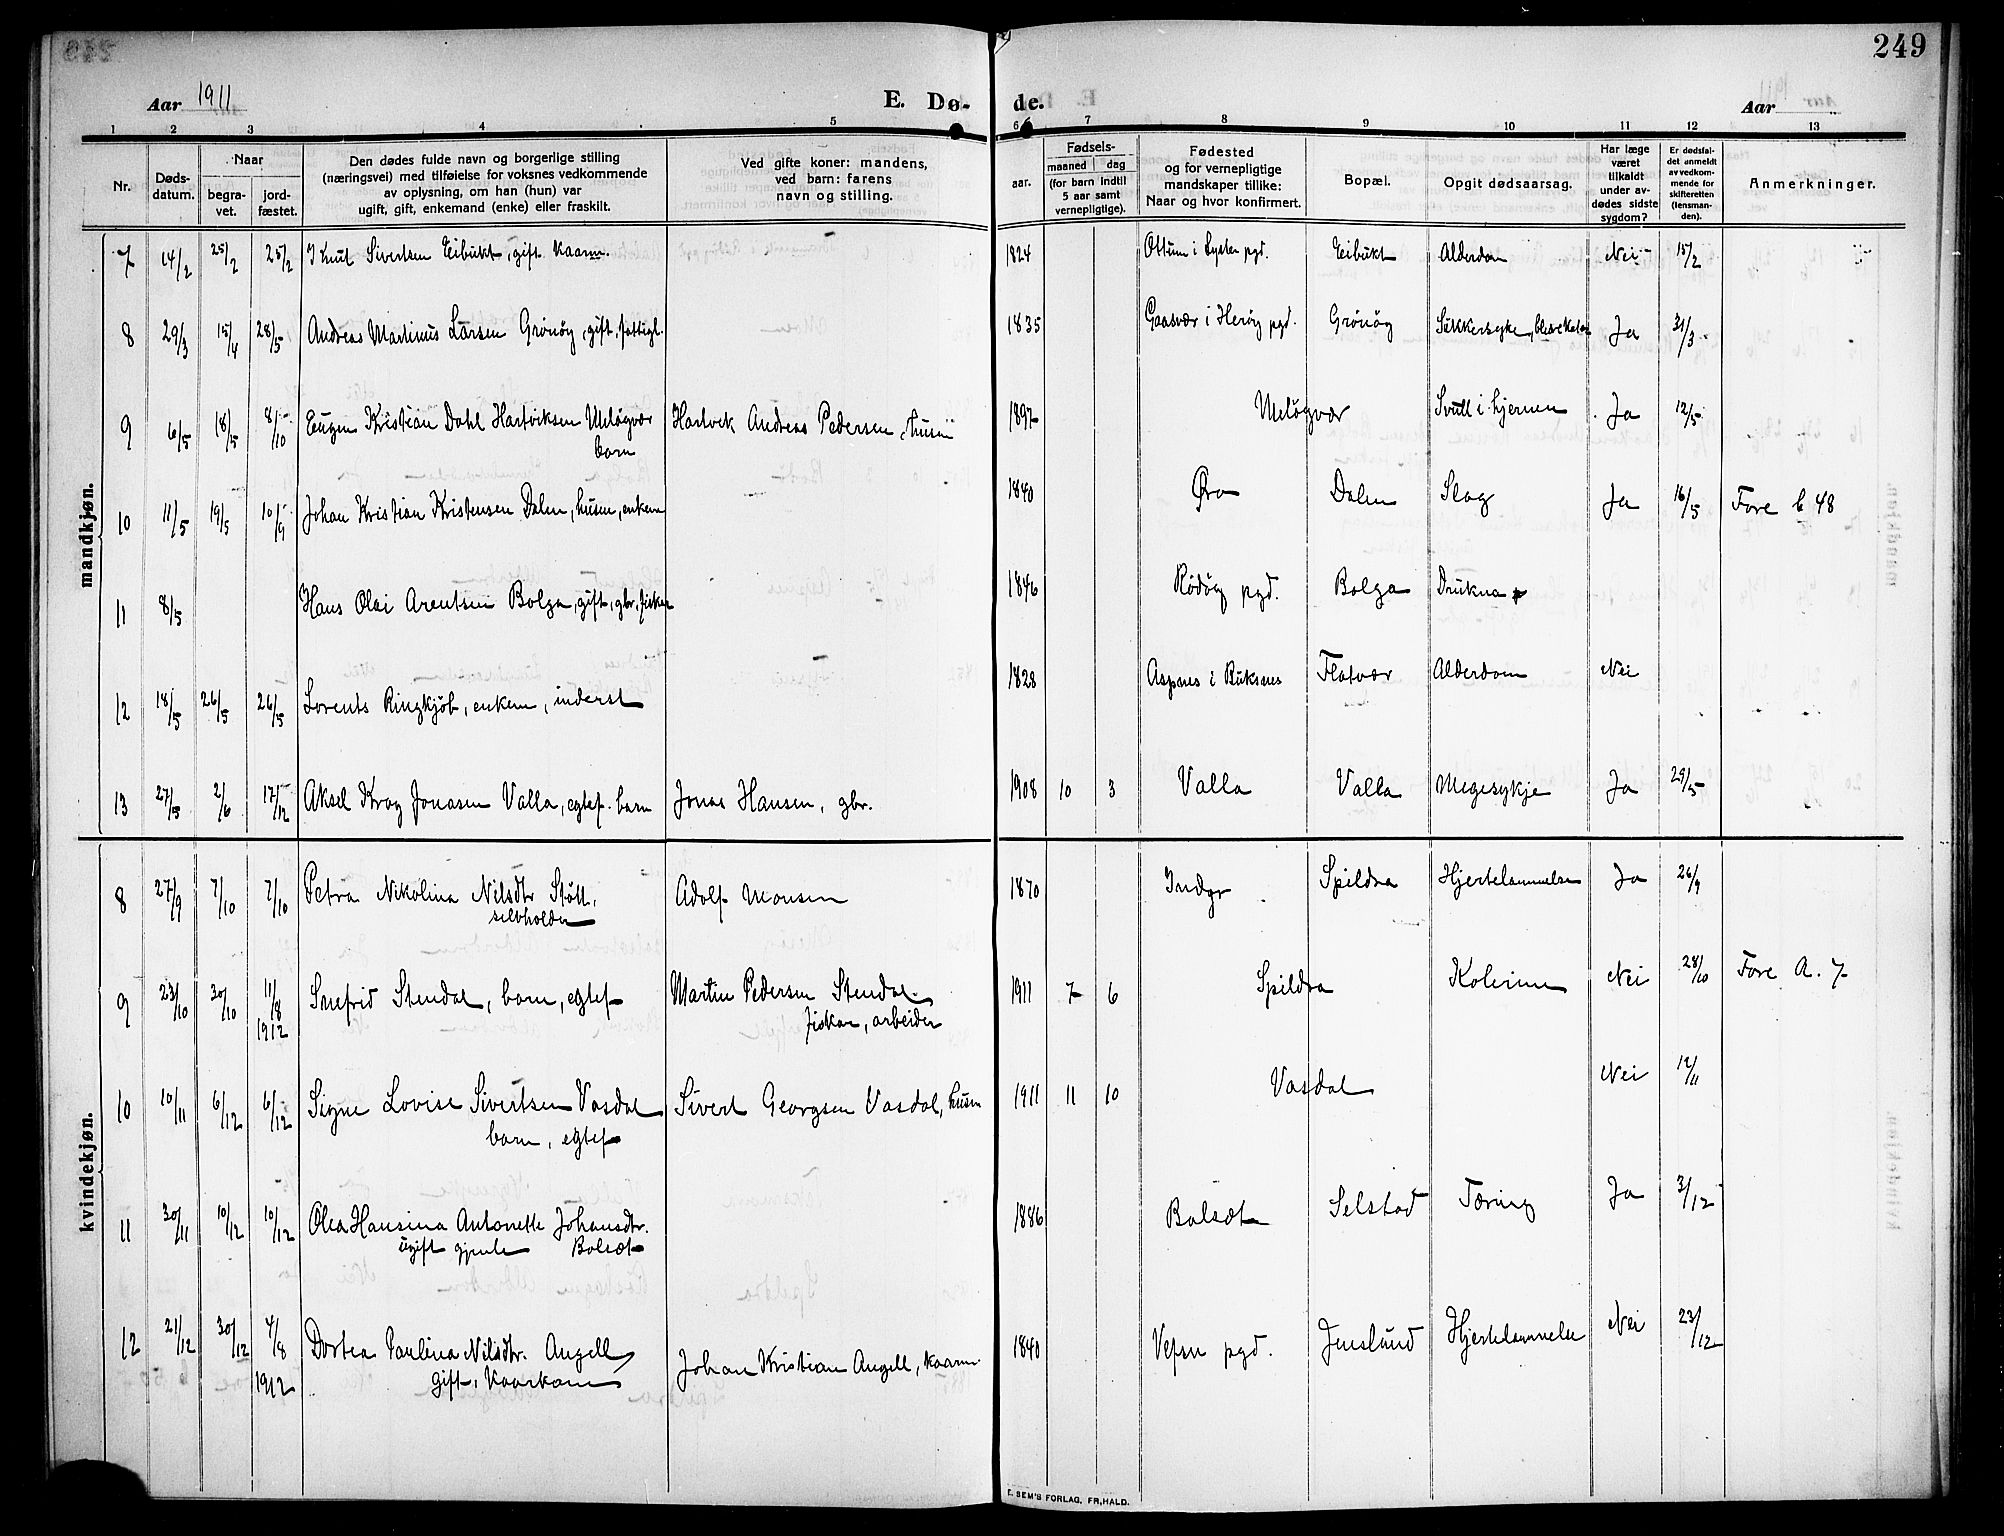 249
Aar 1911
E. Dø-
de.
Aar
1 2 3 4 5 6 7 8 9 10 11 12 13
Nr.
Døds-
datum.
Naar
begra-
vet.
jord-
fæstet.
Den dødes fulde navn og borgerlige stilling
(næringsvei) med tilføielse for voksnes vedkommende
av oplysning, om han (hun) var
ugift, gift, enkemand (enke) eller fraskilt.
Ved gifte koner: mandens,
ved barn: farens
navn og stilling.
aar.
Fødsels-
maaned dag
(for barn indtil
5 aar samt
vernepligtige).
Fødested
og for vernepligtige
mandskaper tillike:
Naar og hvor konfirmert.
Bopæl.
Opgit dødsaarsag.
Har læge
været
tilkaldt
under av-
dødes sidste
sygdom?
Er dødsfal-
det anmeldt
av vedkom-
mende for
skifteretten
(lensman-
den).
Anmerkninger.
mandkjøn.
7 14/2 25/2 25/2 Knut Sivertsen Eibukt, gift kaarm. 1824 Ottum i Lyster pgd. Eibukt Alderdom Nei 15/2
8 29/3 15/4 28/5 Andreas Martinus Larsen Grönöy, gift, fattigl. 1835 Gaasvær i Heröy pgd. Grönöy Sukkersyke, blærekatar Ja 31/3
9 6/5 18/5 8/10 Eugen Kristian Dahl Hartviksen Meløyvær Hartvik Andreas Pedersen, husm 1897 Meløyvær Svull i hjernen Ja 12/5
barn
10 11/5 19/5 10/9 Johan Kristian Kristensen Dalen, husm, enkem 1840 Øra Dalen Slag Ja 16/5 Fore b 48
11 8/5 Hans Olai Arentsen Bolga, gift, gbr, fisker 1846 Rödöy pgd. Bolga Drukna
12 18/5 26/5 26/5 Lorents Ringkjöb, enkem, inderst 1828 Aspnes i Buksnes Flatvær Alderdom Nei
13 27/5 2/6 17/12 Aksel Krog Jonasen Valla, egtef. barn Jonas Hansen, gbr. 1908 10 3 Valla Valla Megesykje Ja 29/5
kvindekjøn.
8 27/9 7/10 7/10 Petra Nikolina Nilsdtr Støtt, Adolf Monsen 1870 Indyr Spildra Hjertelammelse Ja 26/9
selvholder
9 23/10 30/10 11/8 Snefrid Stendal, barn, egtef Martin Pedersen Stendal 1911 7 6 Spildra Kolerine Nei 28/10 Fore A. 7
1912 fiskar, arbeider
10 10/11 6/12 6/12 Signe Lovise Sivertsen Vasdal Sivert Georgsen Vasdal, husm 1911 11 10 Vasdal Nei 12/11
barn, egtef
11 30/11 10/12 10/12 Olea Hansina Antonette Johansdtr. 1886 Bolsæt Selstad Tæring Ja 3/12
ugift gjente Bolsæt
12 21/12 30/12 4/8 Dortea Paulina Nilsdtr. Angell Johan Kristian Angell, kaarm 1840 Vefsn pgd. Jenslund Hjertelammelse Nei 23/12
1912 gift, kaarkone
E. SEM'S FORLAG, FR,HALD.